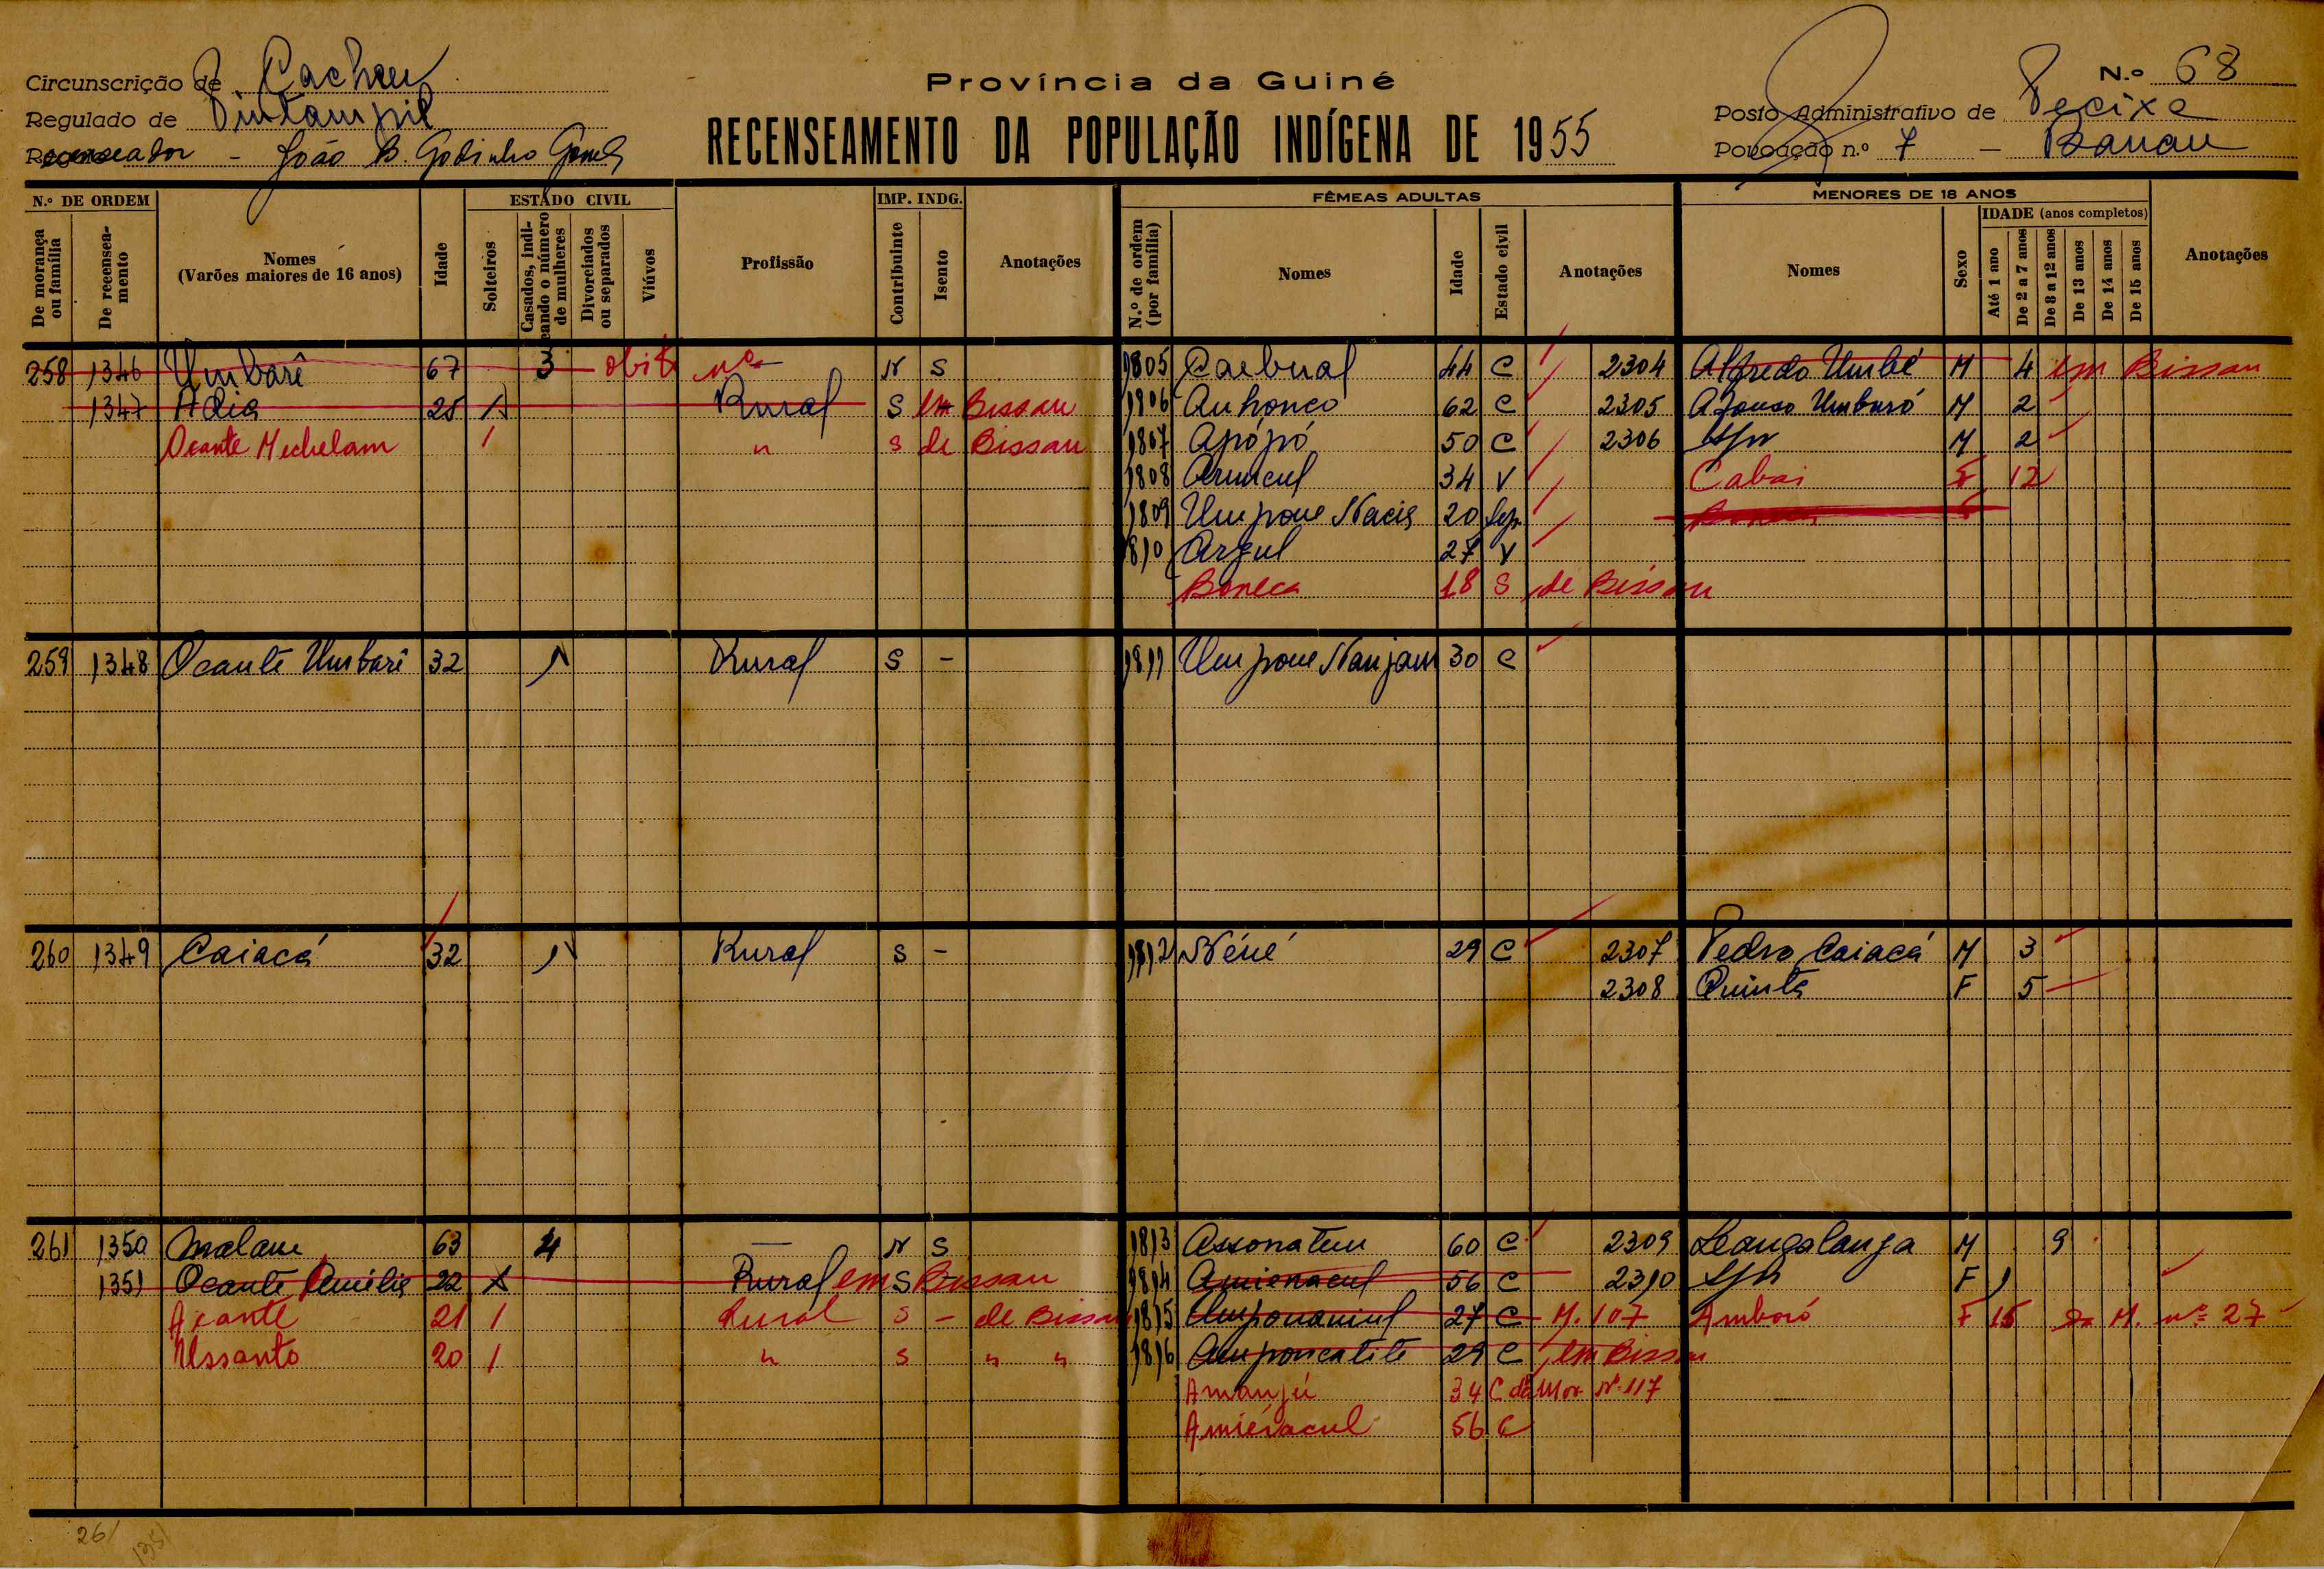 Circunscrição de Cacheu
Província da Guiné
N.º 68
Regulado de
Posto Administrativo de Pecixe
Recenseador - João B. Godinho Gomes
RECENSEAMENTO DA POPULAÇÃO INDÍGENA DE 1955
Povoação n.º 7 -
N.º DE ORDEM
ESTADO CIVIL
IMP. INDG.
FÊMEAS ADULTAS
MENORES DE 18 ANOS
IDADE (anos completos)
De morança ou família
De recenseamento
Nomes
(Varões maiores de 16 anos)
Idade
Solteiros
Casados, indicando o número de mulheres
Divorciados ou separados
Viúvos
Profissão
Contribuinte
Isento
Anotações
N.º de ordem (por família)
Nomes
Idade
Estado civil
Anotações
Nomes
Sexo
Até 1 ano
De 2 a 7 anos
De 8 a 12 anos
De 13 anos
De 14 anos
De 15 anos
Anotações
258 1346 Umbarê 67 3 N S 1805 Caebual 44 C 2304 Alfredo Umbé M 4 em Bissau
1347 Adia 25 1 Rural S em Bissau 1806 Anhonco 62 C 2305 Afonso Umbaró M 2
Ocante Mechelam 1 " S de Bissau 1807 Apópó 50 C 2306 M 2
1808 34 V Cabai F 12
1809 Umpone Nacia 20 Sep.
1810 Arzul 27 V
Boneca 18 S de Bissau
259 1348 Ocante Umbarê 32 1 Rural S - 1811 Umpone Nanjam 30 C
260 1349 Caiacá 32 1 Rural S - 1812 Néné 29 C 2307 Pedro Caiacá M 3
2308 Quinta F 5
261 1350 Malam 63 4 — N S 1813 Assonatem 60 C 2309 Leangalanja M 9
1351 Ocante 22 Rural em S Bissau 1814 Amienacul 56 C 2310 F 1
Acante 21 1 Rural S - de Bissau 1815 27 C M. 107 Amboró F 15 M. nº 27
Ussanto 20 1 " S " " 1816 Amponcatite 29 C em Bissau
Amanjú 34 C da Mor. Nº 117
Amiénacul 56 C
261
1351